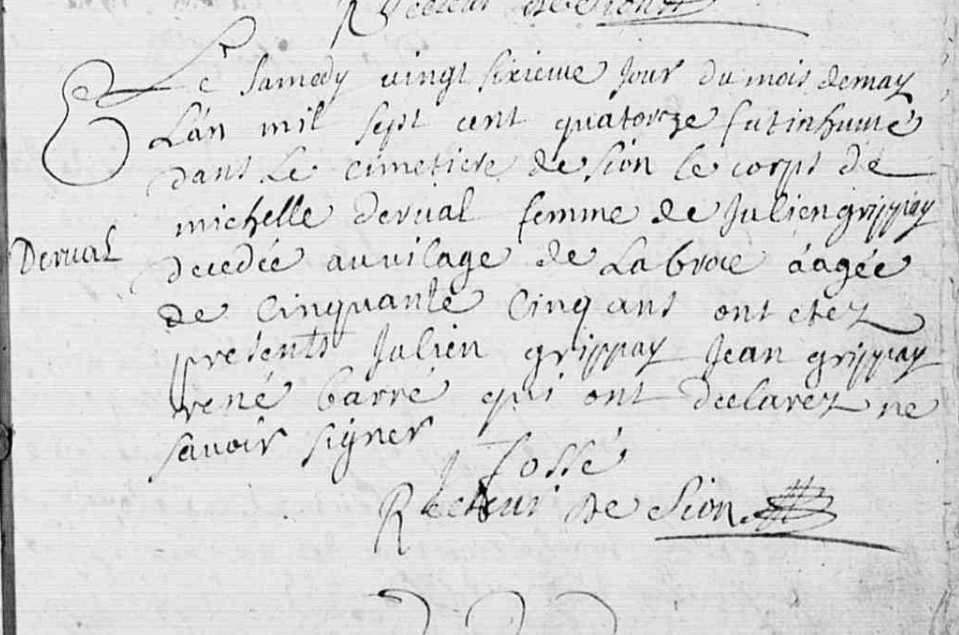 Recteur de Sion
Le Samedy vingt sixieme Jour du mois demay
L'an mil sept cent quatorze fut inhumé
dans Le cimetiere de Sion le corps de
michelle Derval femme de Julien grippay
Derval
decedée au vilage de La broce áagée
de Cinquante Cinq ans ont etez
presents Julien grippay Jean grippay
rené barré qui ont declarez ne
savoir signer
J fossé
Recteur de Sion